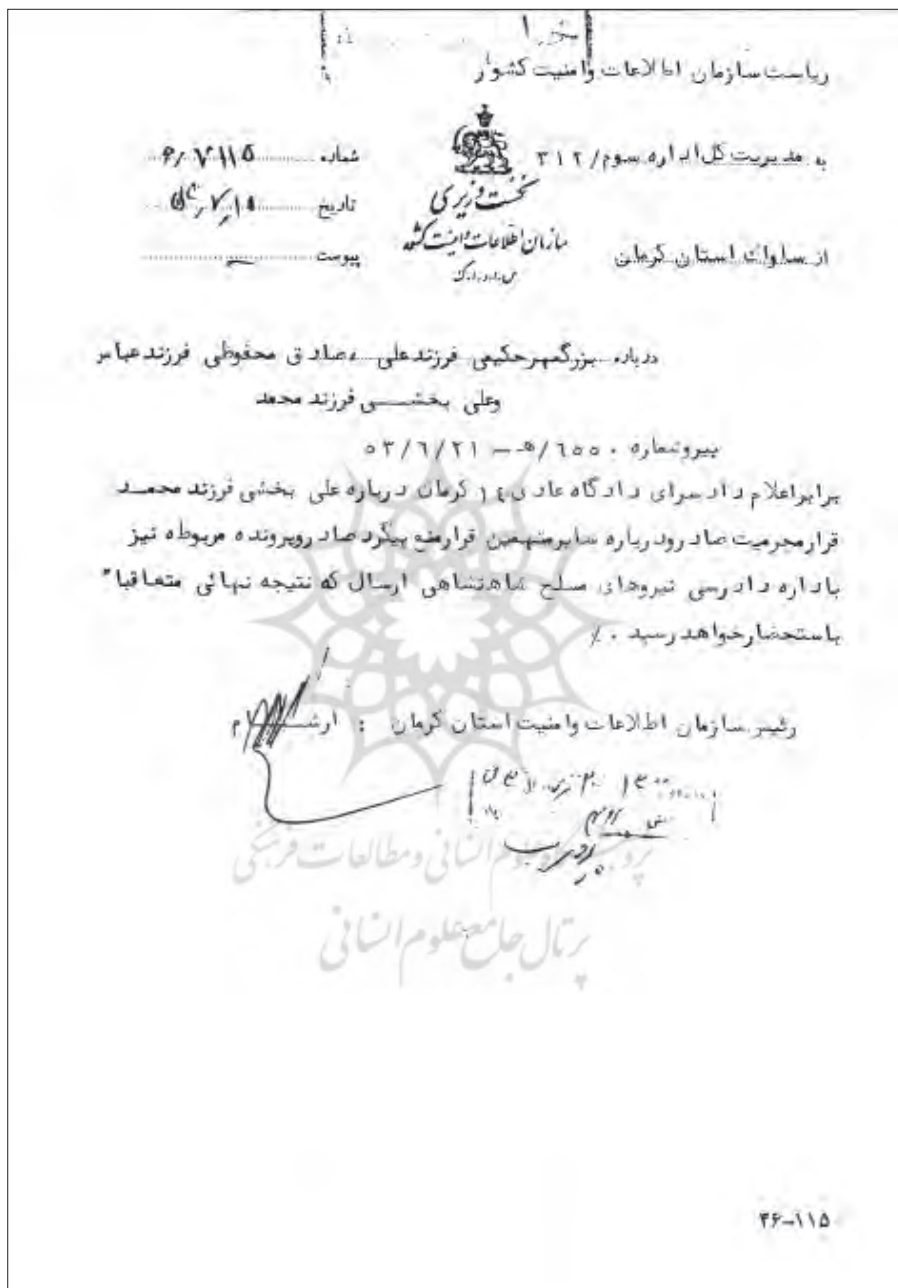 ریاست سازمان اطلاعات و امنیت کشور
به مدیریت کل اداره سوم/ ۳۱۲
نخست وزیری
سازمان اطلاعات و امنیت کشور
س.ا.و.ا.ک
شماره
تاریخ
پیوست
از ساواک استان کرمان
درباره بزرگمهر حکیمی فرزند علی، صادق محفوظی فرزند عباس
وعلی بخشـــی فرزند محمد
پیروشماره ۶۵۵۰/ه‍ - ۵۳/۶/۲۱
برابر اعلام دادسرای دادگاه عادی ۱۴ کرمان درباره علی بخشی فرزند محمــد
قرارمجرمیت صادرودرباره سایرمتهمین قرارمنع پیگرد صادروپرونده مربوطه نیز
باداره دادرسی نیروهای مسلح شاهنشاهی ارسال که نتیجه نهائی متعاقباً
باستحضارخواهدرسید ./
رئیس سازمان اطلاعات وامنیت استان کرمان : آرشـــام
پژوهشگاه علوم انسانی و مطالعات فرهنگی
پرتال جامع علوم انسانی
۳۶-۱۱۵